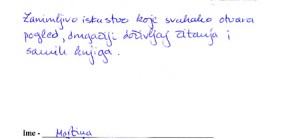 Zanimljivo iskustvo koje svakako otvara
pogled, drugačiji doživljaj čitanja i
samih knjiga.
Ime - Martina